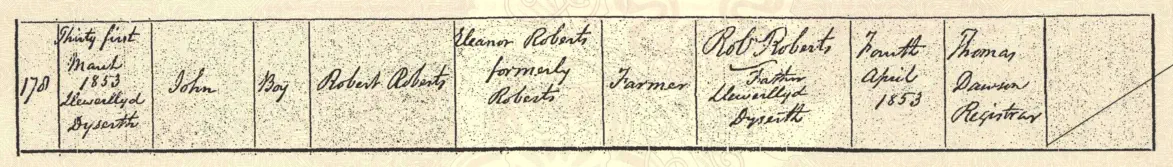 178
Thirty first
March
1853
Llewerllyd
Dyserth
John
Boy
Robert Roberts
Eleanor Roberts
formerly
Roberts
Farmer
Robt Roberts
Father
Llewerllyd
Dyserth
Fourth
April
1853
Thomas
Dawson
Registrar